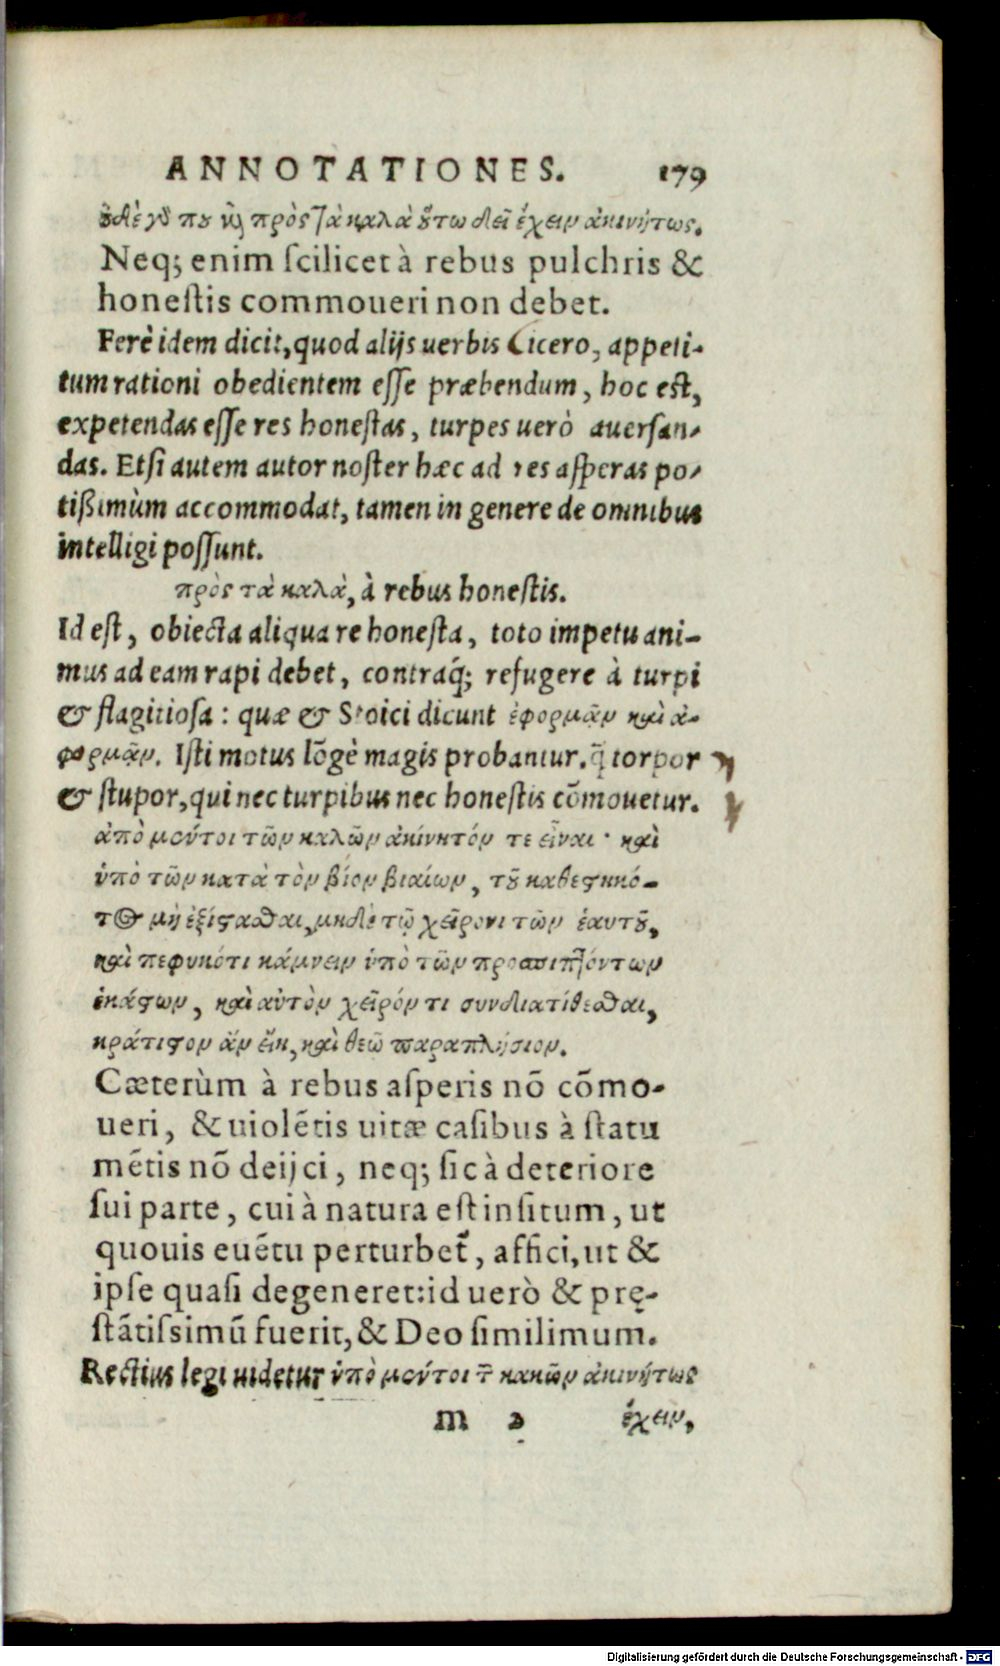 ANNOTATIONES. 179
οὐδὲ γὸ που καὶ πρὸς τὰ καλὰ οὕτω δεῖ ἔχειν ἀκινήτως.
Neq; enim ſcilicet à rebus pulchris &
honeſtis commoueri non debet.
Ferè idem dicit, quod alijs uerbis Cicero, appeti-
tum rationi obedientem eſſe præbendum, hoc eſt,
expetendas eſſe res honeſtas, turpes uerò auerſan-
das. Etſi autem autor noſter hæc ad res aſperas po-
tißimùm accommodat, tamen in genere de omnibus
intelligi poſſunt.
πρὸς τὰ καλὰ, à rebus honeſtis.
Id est, obiecta aliqua re honeſta, toto impetu ani-
mus ad eam rapi debet, contraq́; refugere à turpi
& flagitioſa: quæ & Stoici dicunt ἐφορμᾶν καὶ ἀ-
φορμᾶν. Iſti motus lōgè magis probantur. q̄ torpor
& ſtupor, qui nec turpibus nec honeſtis cōmouetur.
ἀπὸ μέντοι τῶν καλῶν ἀκίνητόν τε εἶναι· καὶ
ὑπὸ τῶν κατὰ τὸν βίον βιαίων, τοῦ καθεστηκό-
τος μὴ ἐξίστασθαι, μηδὲ τῷ χείρονι τῶν ἑαυτοῦ,
καὶ πεφυκότι κάμνειν ὑπὸ τῶν προσπιπτόντων
ἑκάστων, καὶ αὐτὸν χεῖρόν τι συνδιατίθεσθαι,
κράτιστον ἂν εἴη, καὶ θεῷ παραπλήσιον.
Cæterùm à rebus aſperis nō cōmo-
ueri, & uiolētis uitæ caſibus à ſtatu
mētis nō deijci, neq; ſic à deteriore
ſui parte, cui à natura eſt inſitum, ut
quouis euētu perturbet᷑, affici, ut &
ipſe quaſi degeneret: id uerò & prę-
ſtātiſsimū fuerit, & Deo ſimilimum.
Rectius legi uidetur ὑπὸ μέντοι τ̃ κακῶν ἀκινήτως
m 2 ἔχειν,
Digitalisierung gefördert durch die Deutsche Forschungsgemeinschaft - DFG